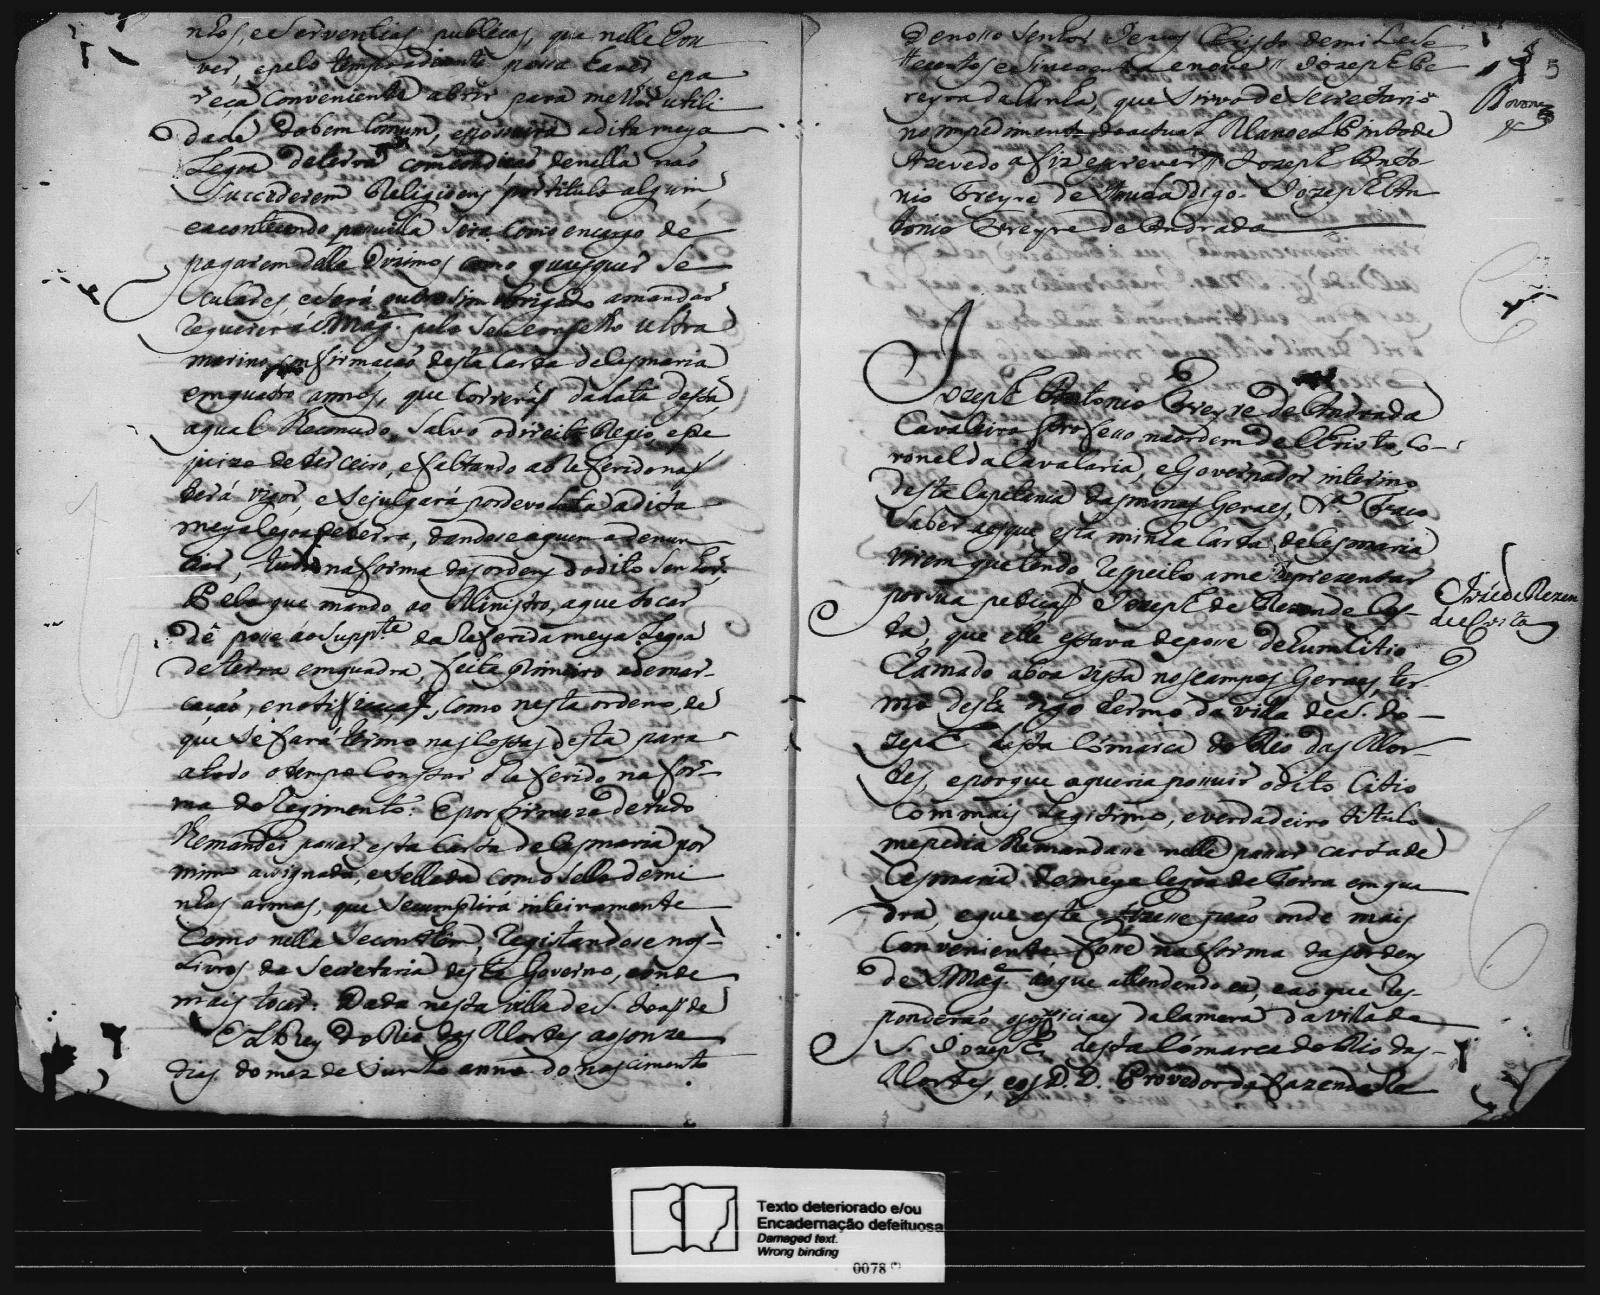 nhos, e Serventias publicas, que nelle hou
ver, e pelo tempo adiante possa haver, e pa
reça conveniente abrir para melhor utili
dade do bem Cómum, e possuirá a dita meya
Legoa de terra com condição de nella não
Succederem Religioens por titulo algum,
e acontecendo possuilla Será com o encargo de
pagarem della Dizimos como quaesquer Se
culares, e Será outro Sim obrigado a mandar
requerer a S. Mag.e pelo Seu conselho ultra
marino confirmação desta Carta de Sesmaria
em quatro annos, que Correrão da data desta,
a qual lhe concedo, Salvo o direito Regio, e pre
juizo de terceiro, e faltando ao referido não
terá vigor, e se julgará por devoluta a dita
meya legoa de terra, dandose a quem a denun
ciar, tudo na forma das ordens do dito Senhor.
Pelo que mando ao Ministro, a que tocar
dê posse ao Supp.te da referida meya Legoa
de terra em quadra, feita primeiro a demar-
cação, e notificação, como nesta ordeno, de
que Se fará termo nas Costas desta para
a todo o tempo Constar o referido na for-
ma do Regimento. E por firmeza de tudo
lhe mandei passar esta Carta de Sesmaria por
mim assignada, e Sellada com o Sello de mi
nhas armas, que Se cumprirá inteiramente
Como nella Se contem, registandose nos
Livros da Secretaria deste Governo, e onde
mais tocar. Dada nesta villa de S. Joaõ de
El Rey do Rio das Mortes aos onze
dias do mez de Junho anno do nascimento
de nosso Senhor Jesus Christo de mil e Se
tecentos e Sincoenta e nove // Jozeph Pe
reyra da Cunha, que Sirvo de Secretario
no impedimento do actual Manoel Pinto de
Azevedo a fiz escrever // Jozeph Anto
nio Freyre de Andrada digo. Jozeph An
tonio Freyre de Andrada
5
Jozeph Antonio Freyre de Andrada
Cavaleiro professo na ordem de Christo, Co-
ronel da Cavalaria, e Governador interino
desta Capitania das minas Geraes, &.a Faço
Saber aos que esta minha Carta de Sesmaria
virem que tendo respeito a me representar
por Sua petição Jozeph de Rezende Cos-
ta, que elle estava de posse de hum Citio
Chamado a boa vista nos campos Geraes, ter-
mo desta digo termo da villa de S. Jo-
zeph desta Cómarca do Rio das Mor-
tes, e porque o queria possuir o dito Citio
Com mais legitimo, e verdadeiro titulo
me pedia lhe mandasse nelle passar carta de
Cesmaria de meya legoa de Terra em qua
dra, e que esta fizesse pião onde mais
Conveniente fosse na forma das ordens
de S. Mag.e ao que attendendo eu, e ao que res-
ponderão os officiaes da Camera da villa de
S. Jozeph desta Cómarca do Rio das-
Mortes, e os D. D. Provedor da fazenda Re
Joze de Rezen
de Costa
Texto deteriorado e/ou
Encadernação defeituosa
Damaged text.
Wrong binding
0078 (*)